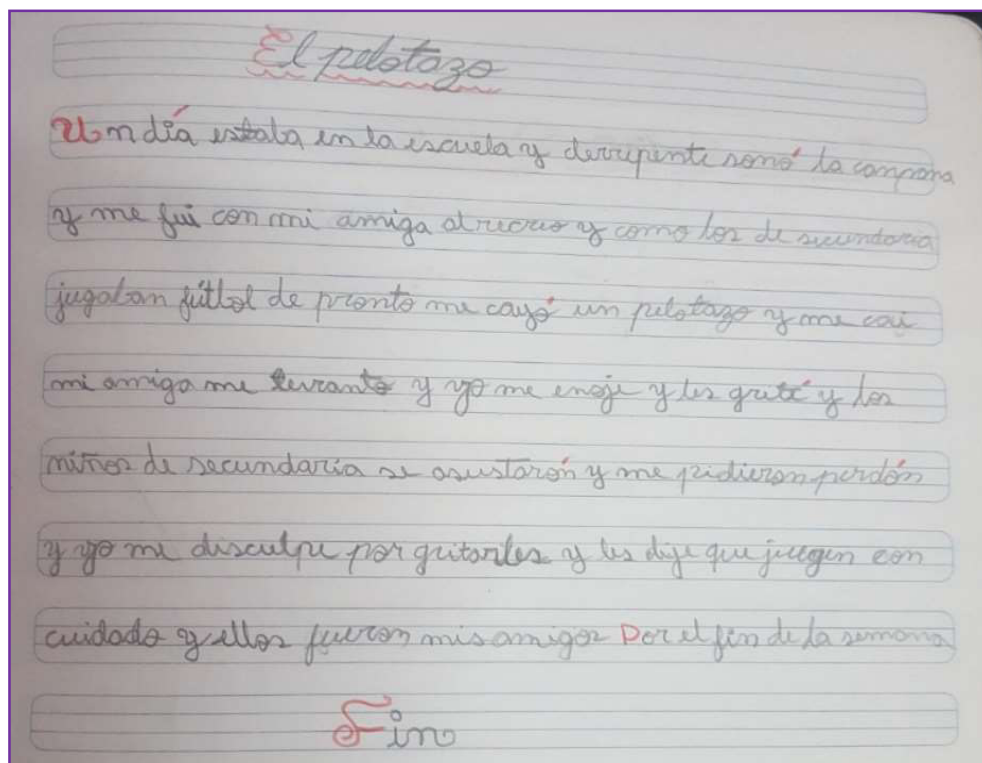 El pelotazo
Un día estaba en la escuela y derrepente sonó la campana
y me fui con mi amiga al recreo y como los de secundaria
jugaban fútbol de pronto me cayó un pelotazo y me caí
mi amiga me levanto y yo me enoje y les grité y los
niños de secundaria se asustarón y me pidieron perdón
y yo me disculpe por gritarles y les dije que juegen con
cuidado y ellos fueron mis amigos Por el fin de la semana
Fin